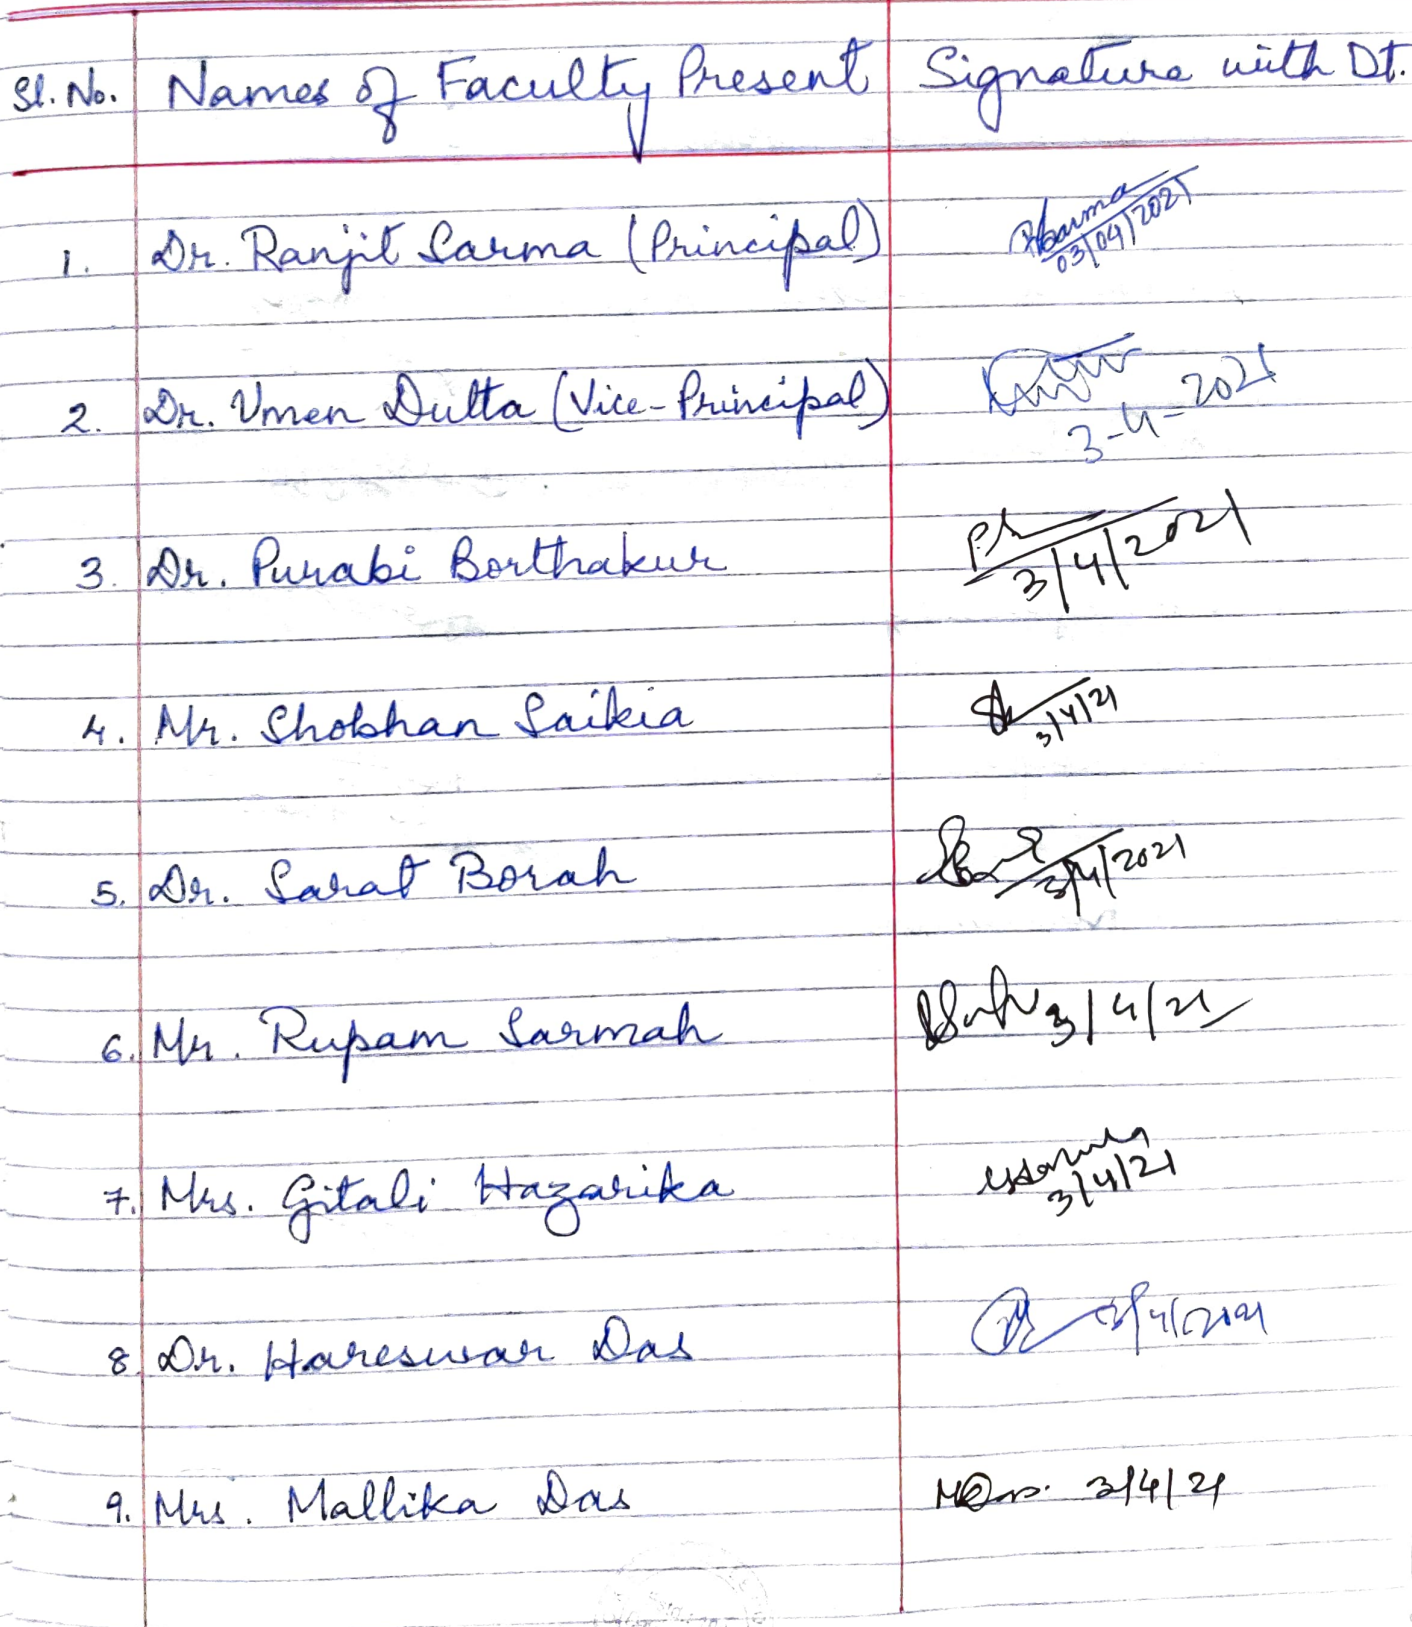 Sl. No. Names of Faculty Present Signature with Dt.
1. Dr. Ranjit Sarma (Principal) 03/04/2021
2. Dr. Umen Dutta (Vice-Principal) 3-4-2021
3. Dr. Purabi Borthakur 3/4/2021
4. Mr. Shobhan Saikia 3/4/21
5. Dr. Sarat Borah 3/4/2021
6. Mr. Rupam Sarmah 3/4/21
7. Mrs. Gitali Hazarika 3/4/21
8. Dr. Hareswar Das 3/4/2021
9. Mrs. Mallika Das MDas. 3/4/21